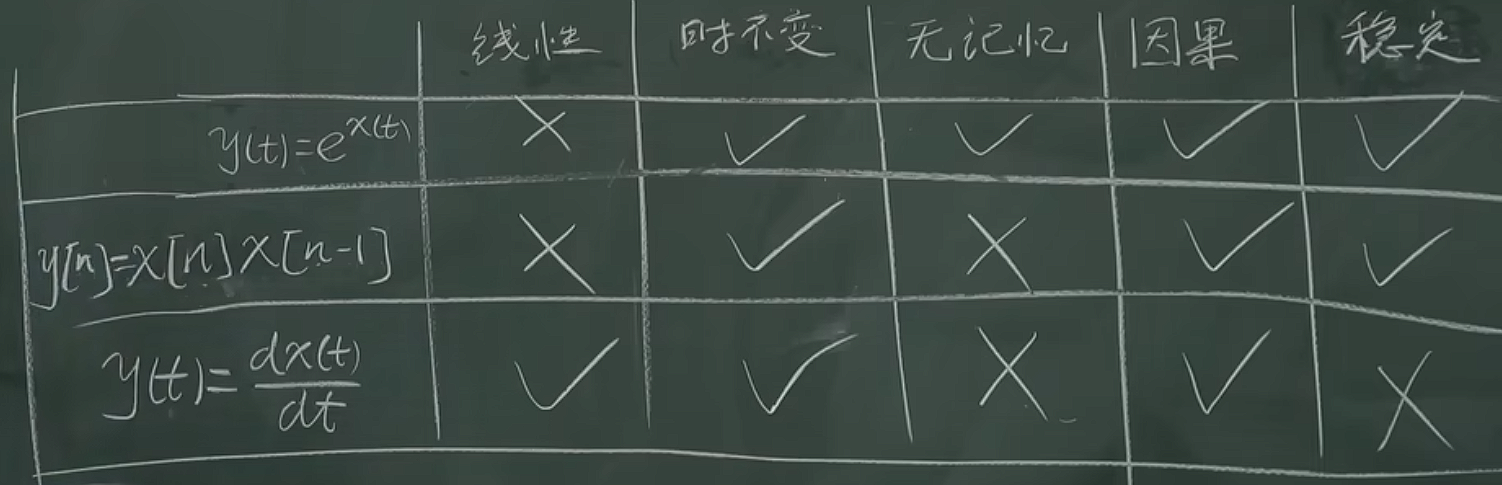 线性 时不变 无记忆 因果 稳定
y(t)=e^{x(t)} × ✓ ✓ ✓ ✓
y[n]=x[n]x[n-1] × ✓ × ✓ ✓
y(t)=\frac{dx(t)}{dt} ✓ ✓ × ✓ ×